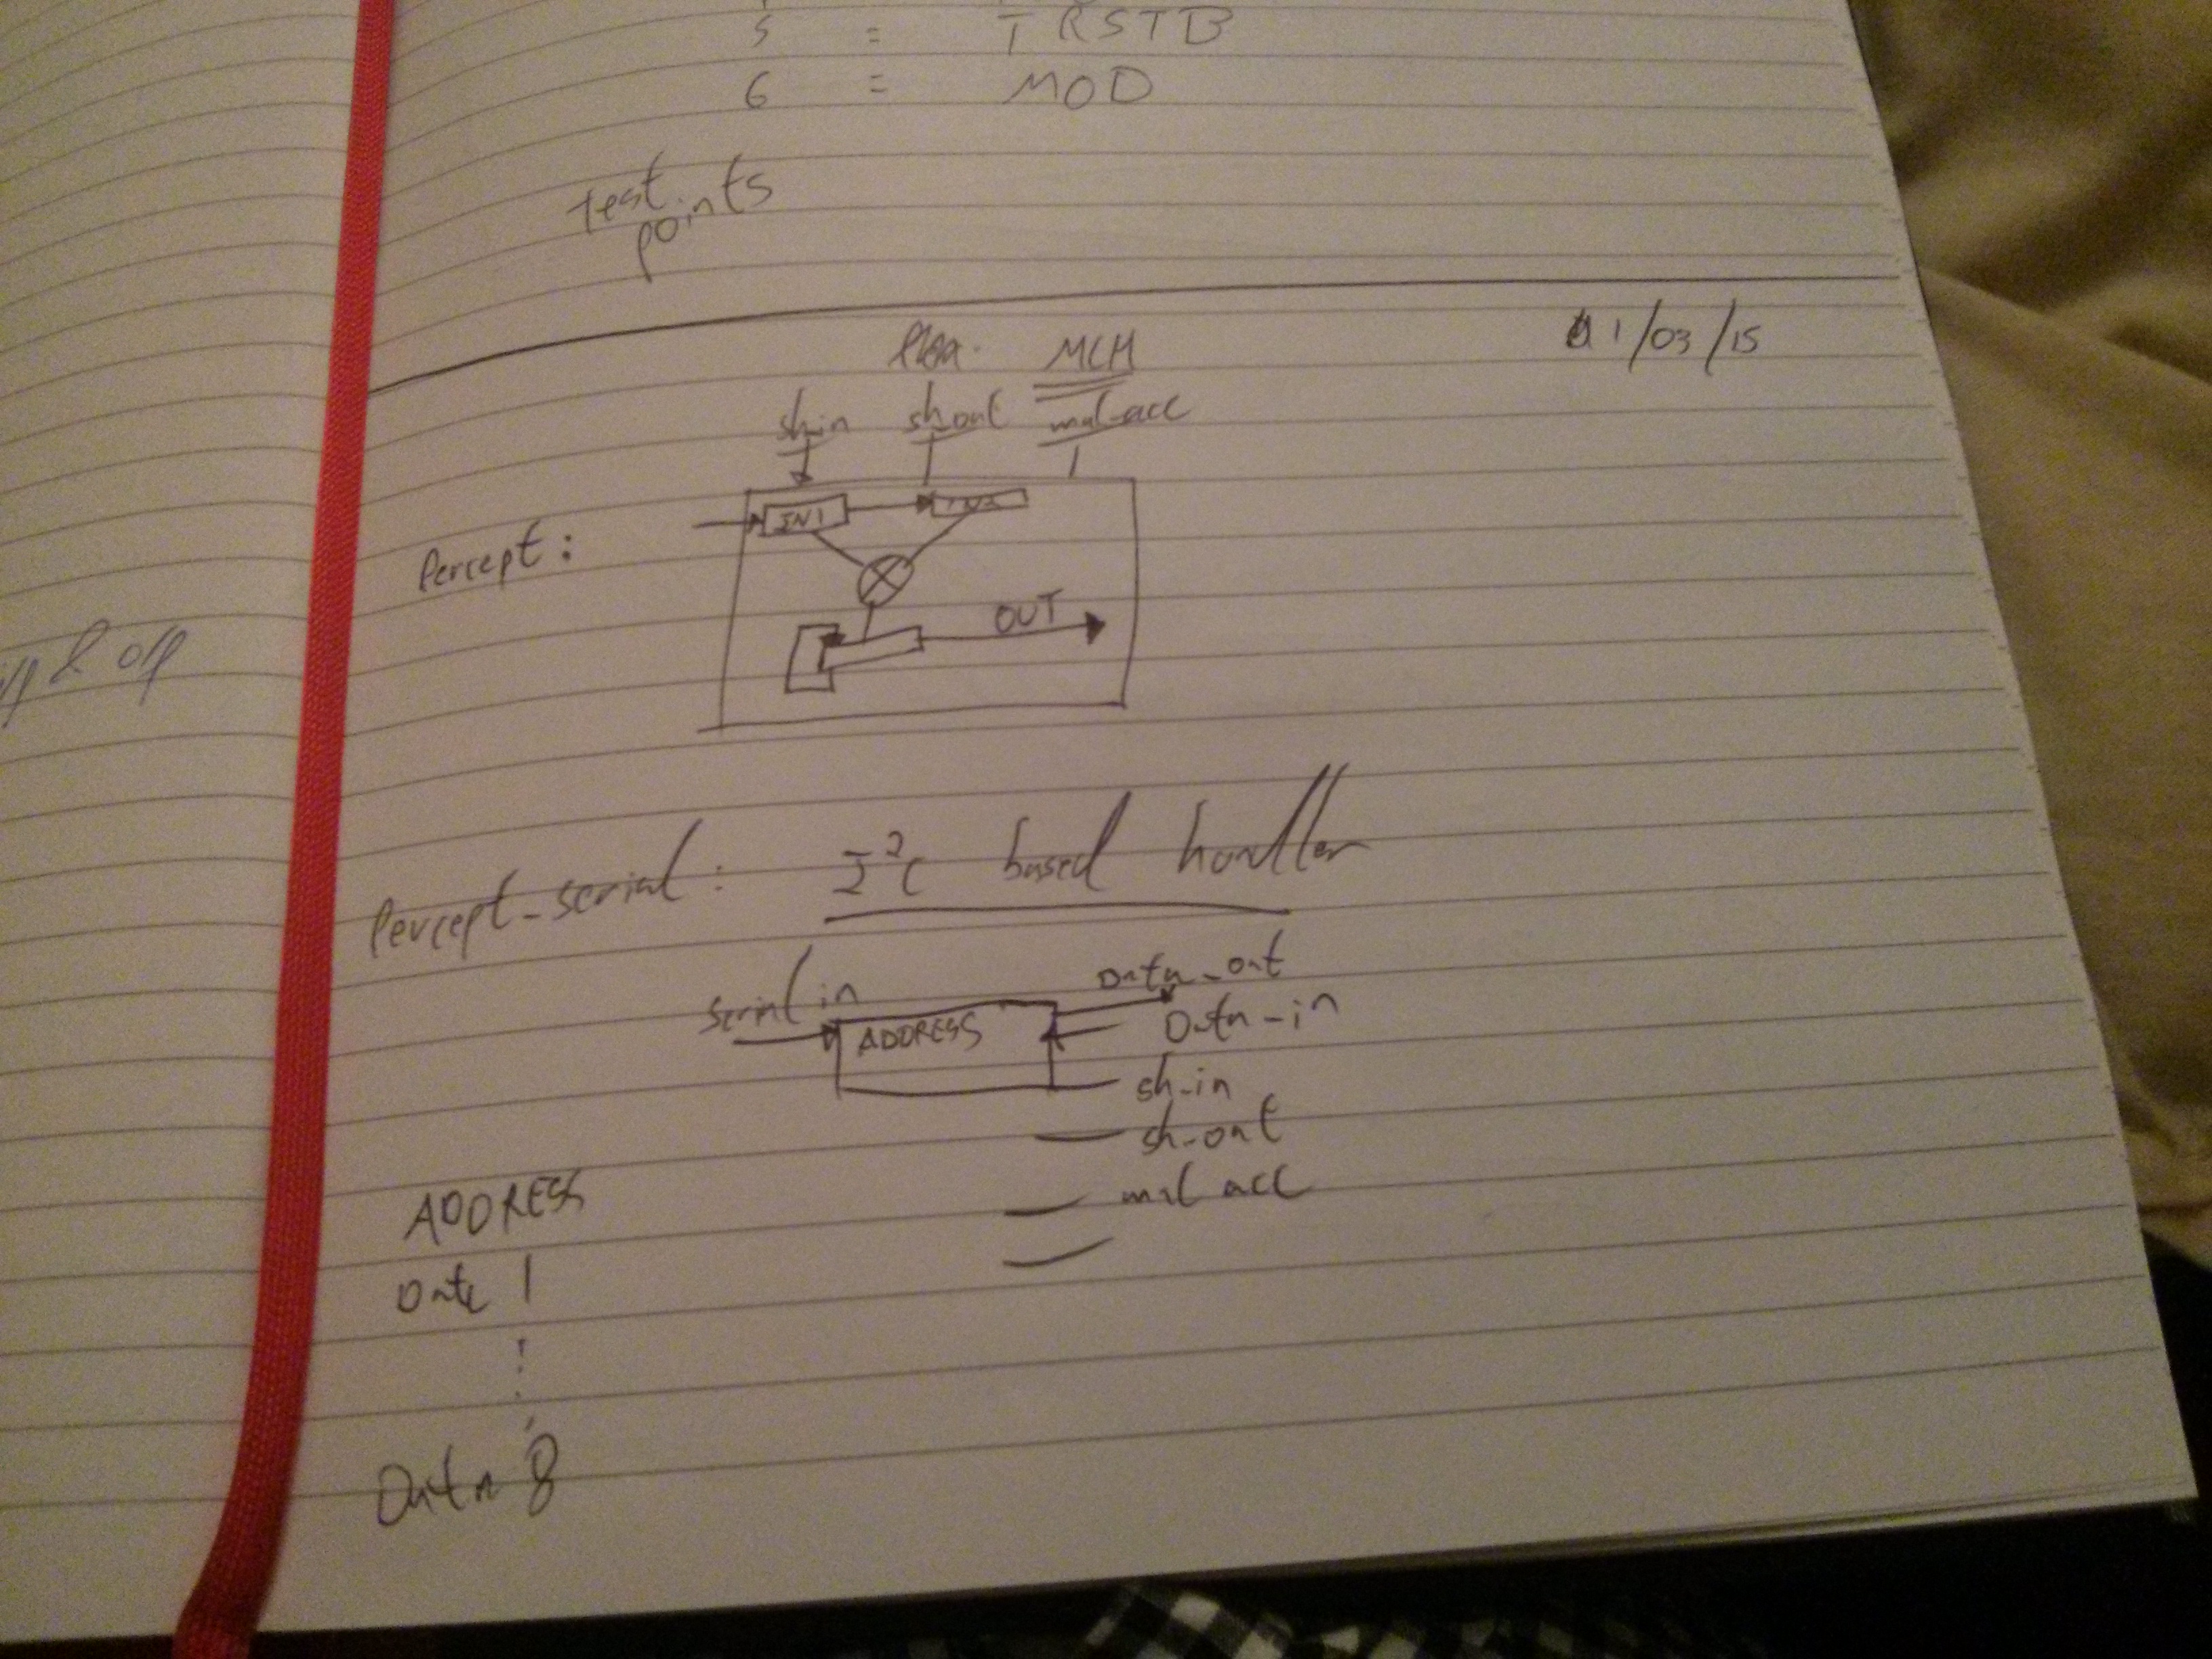 5 = TRSTB
6 = MOD
test
points
1/03/15
MCM
sh_in sh_out mul_acc
IN1 IN2
Percept:
OUT
& off
Percept_serial: I²C based handler
serial in
Data_out
ADDRESS Data_in
sh_in
sh_out
mul acc
ADDRESS
Data 1
Data 8